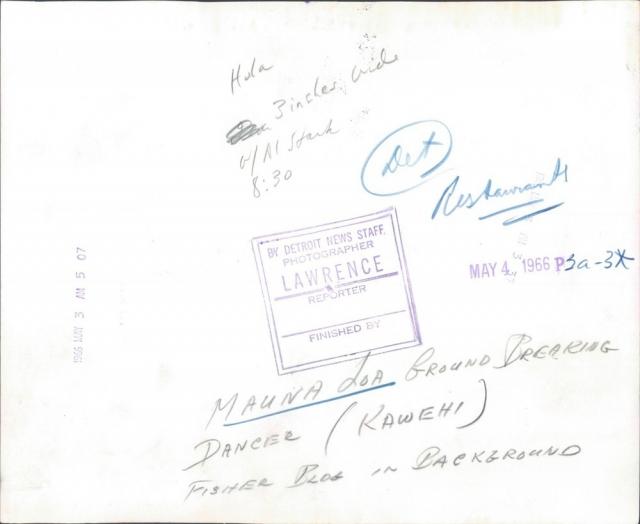 Hula
3 inches wide
w/ Al Stark
8:30
Det
Restaurants
BY DETROIT NEWS STAFF.
PHOTOGRAPHER
LAWRENCE
REPORTER
FINISHED BY
MAY 4 1966 P3a-3X
1966 MAY 3 AM 5 07
MAUNA LOA GROUND BREAKING
DANCER (KAWEHI)
FISHER BLDG IN BACKGROUND